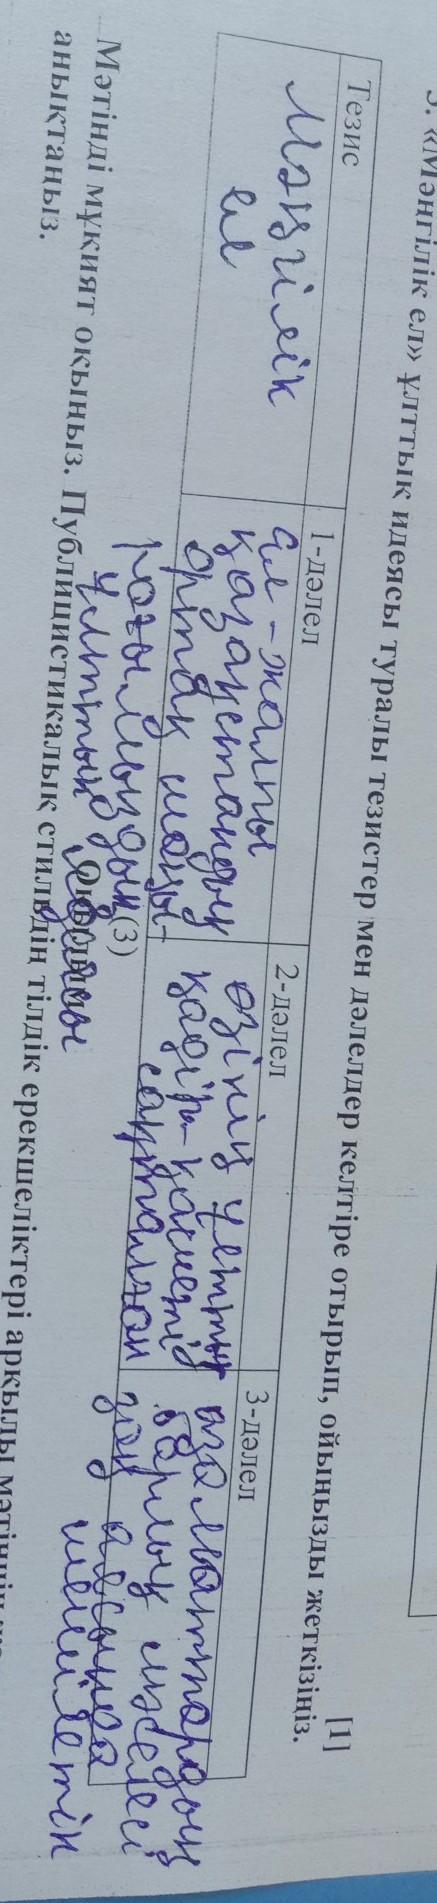 «Мәңгілік ел» ұлттық идеясы туралы тезистер мен дәлелдер келтіре отырып, ойыңызды жеткізіңіз.
[1]
Тезис
Мәңгілік
ел
1-дәлел
ел-жалпы
қазақстандық
ортақ шаңы-
рағымыздың
ұлттық идеясы
2-дәлел
өзінің ұлттық
қадір-қасиеті
сақталған
3-дәлел
азаматтардың
барлық мәселесі
заң аясында
шешілетін
(3)
Мәтінді мұқият оқыңыз. Публицистикалық стильдің тілдік ерекшеліктері арқылы мәтіннің
анықтаңыз.